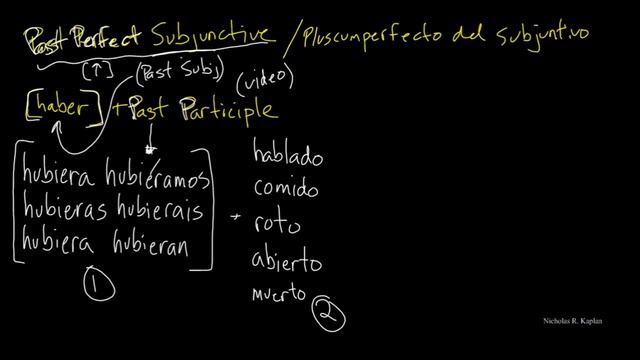 Past Perfect Subjunctive / Pluscumperfecto del subjuntivo
[↑] (Past Subj) (video)
[haber] + Past Participle
hubiera hubiéramos
hubieras hubierais
hubiera hubieran
1
+
hablado
comido
roto
abierto
muerto
2
Nicholas R. Kaplan